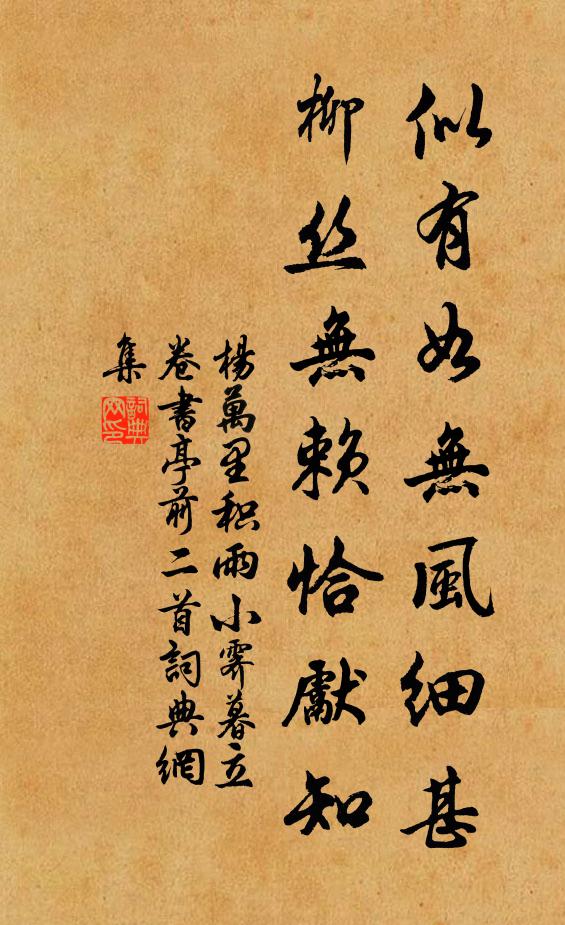 似有如無風細甚
柳丝無賴恰獻知
楊萬里积雨小霽暮立
卷書亭前二首詞典網
集
詞典
网印